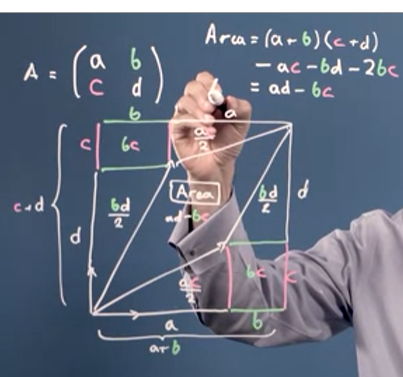 A = (a b
c d)
Area = (a+b)(c+d)
- ac - bd - 2bc
= ad - bc
b
a
c
bc
ac/2
c+d
bd/2
Area
ad-bc
bd/2
d
d
ac/2
bc
c
a
b
a+b